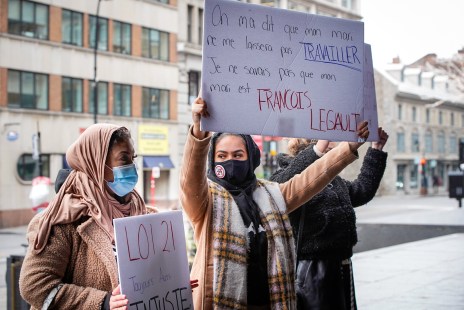 On m'a dit que mon mari
ne me laissera pas TRAVAILLER
Je ne savais pas que mon
mari est FRANCOIS
LEGAULT
LOI 21
Toujours aussi
INJUSTE